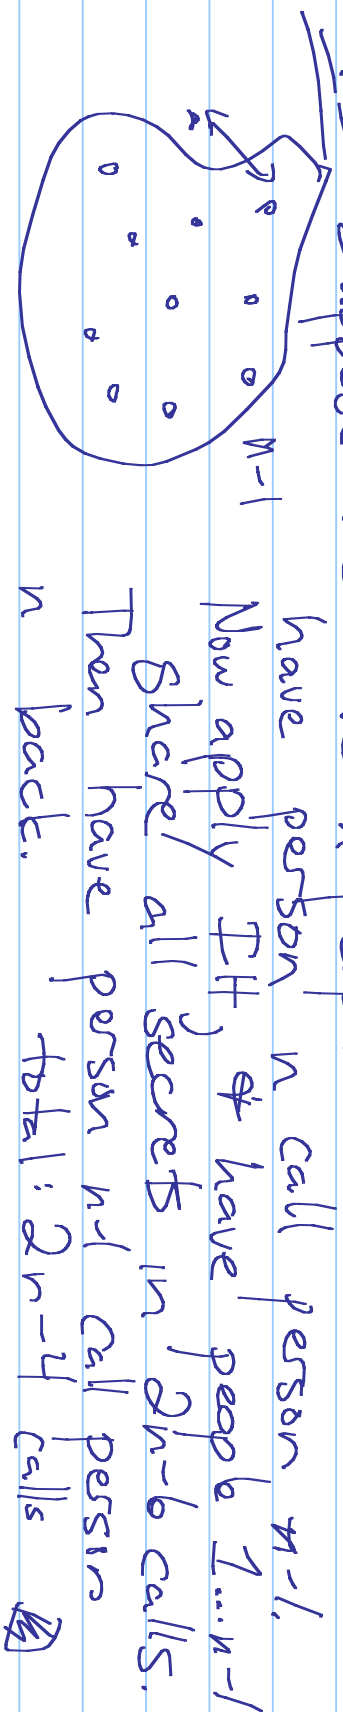 have person n call person n-1.
Now apply IH, & have people 1...n-1
Share all secrets in 2n-6 calls.
Then have person n-1 call person
n back. total: 2n-4 calls
n-1